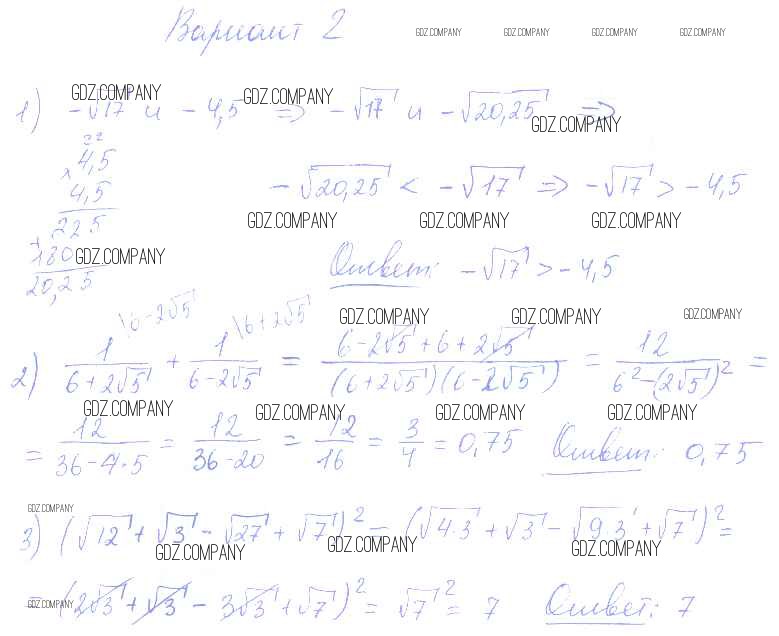 Вариант 2
GDZ.COMPANY GDZ.COMPANY GDZ.COMPANY GDZ.COMPANY
GDZ.COMPANY GDZ.COMPANY
1) -√17 и -4,5 => -√17 и -√20,25 =>
GDZ.COMPANY
22
× 4,5
4,5
-√20,25 < -√17 => -√17 > -4,5
GDZ.COMPANY GDZ.COMPANY GDZ.COMPANY
225
+ 180
GDZ.COMPANY
20,25
Ответ: -√17 > -4,5
\6-2√5 \6+2√5
GDZ.COMPANY GDZ.COMPANY GDZ.COMPANY
2) 1/(6+2√5) + 1/(6-2√5) = (6-2√5+6+2√5)/((6+2√5)(6-2√5)) = 12/(6²-(2√5)²) =
GDZ.COMPANY GDZ.COMPANY GDZ.COMPANY GDZ.COMPANY
= 12/(36-4·5) = 12/(36-20) = 12/16 = 3/4 = 0,75 Ответ: 0,75
GDZ.COMPANY
3) (√12 + √3 - √27 + √7)² = (√4·3 + √3 - √9·3 + √7)² =
GDZ.COMPANY GDZ.COMPANY GDZ.COMPANY
= (2√3 + √3 - 3√3 + √7)² = √7² = 7 Ответ: 7
GDZ.COMPANY